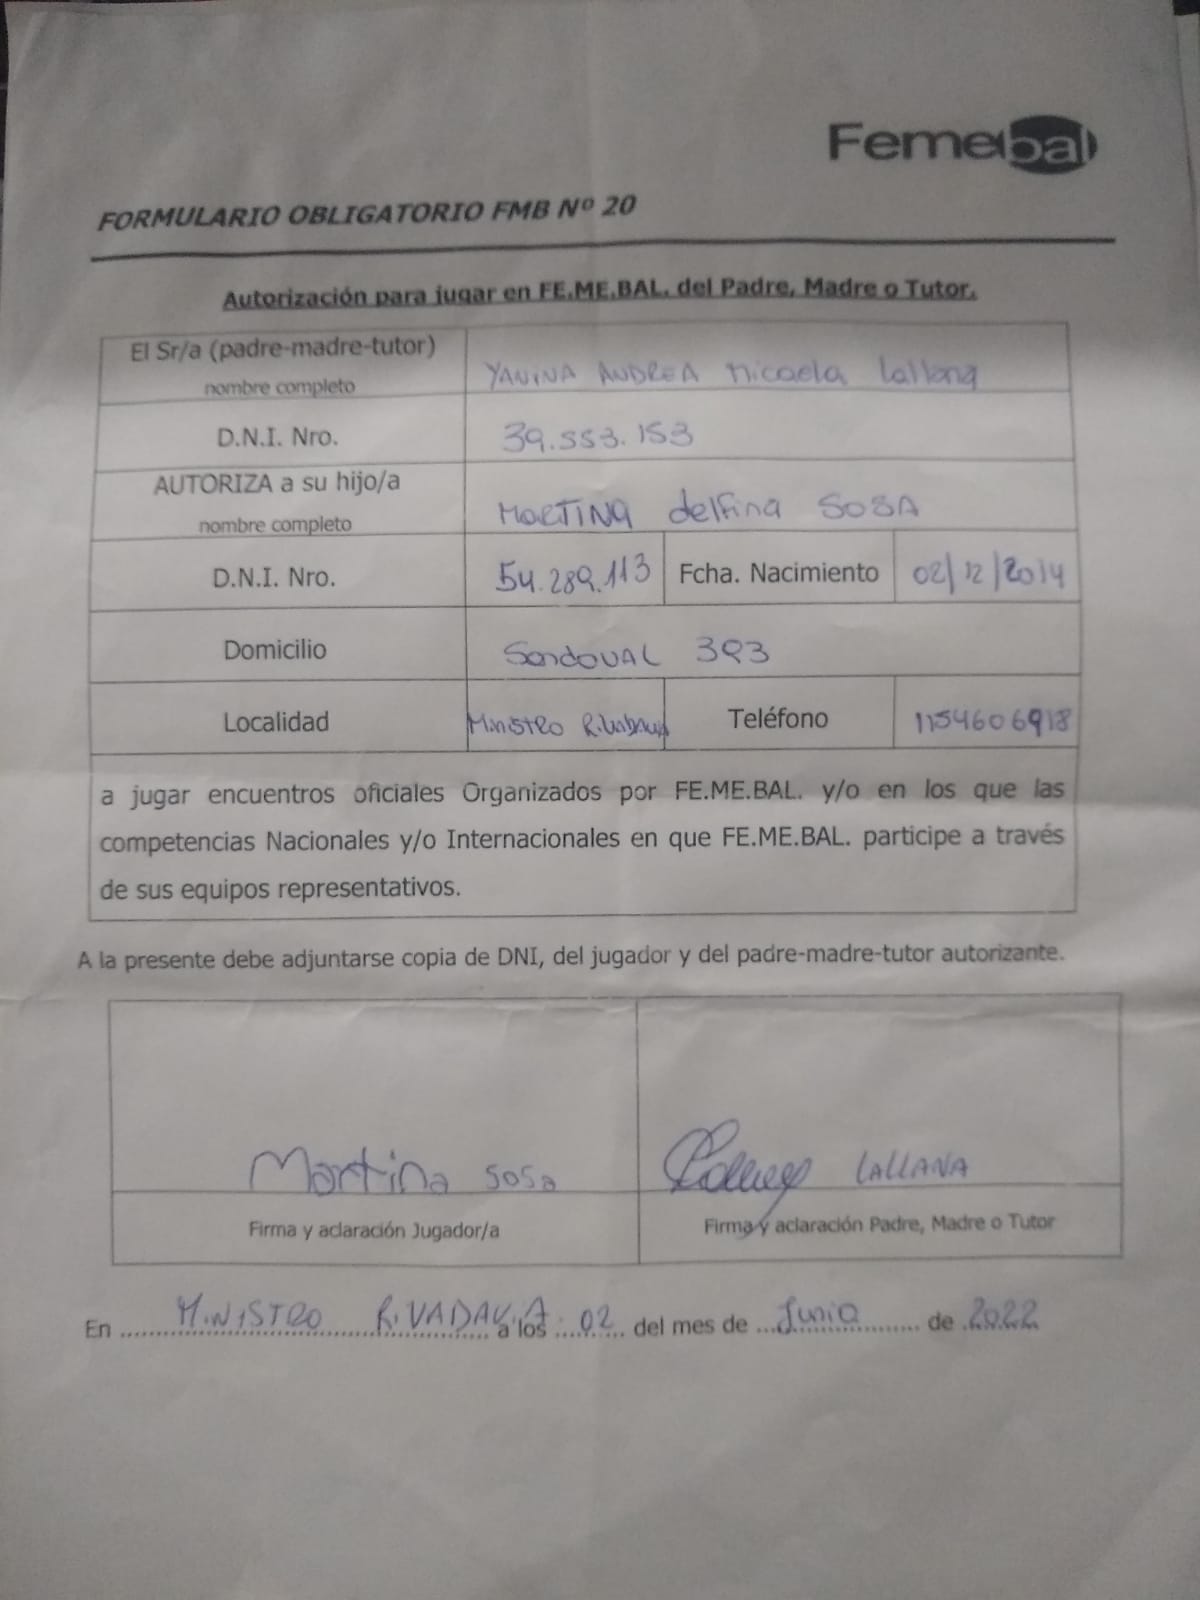 Femebal
FORMULARIO OBLIGATORIO FMB Nº 20
Autorización para jugar en FE.ME.BAL. del Padre, Madre o Tutor.
El Sr/a (padre-madre-tutor)
nombre completo
YANINA ANDREA Micaela Lallana
D.N.I. Nro.
39.553.153
AUTORIZA a su hijo/a
nombre completo
MARTINA delfina SOSA
D.N.I. Nro.
54.289.113
Fcha. Nacimiento
02/12/2014
Domicilio
SandOVAL 393
Localidad
Ministro Rivadavia
Teléfono
1154606918
a jugar encuentros oficiales Organizados por FE.ME.BAL. y/o en los que las
competencias Nacionales y/o Internacionales en que FE.ME.BAL. participe a través
de sus equipos representativos.
A la presente debe adjuntarse copia de DNI, del jugador y del padre-madre-tutor autorizante.
Martina Sosa
LALLANA
Firma y aclaración Jugador/a
Firma y aclaración Padre, Madre o Tutor
En MINISTRO RIVADAVIA a los 02 del mes de Junio de 2022